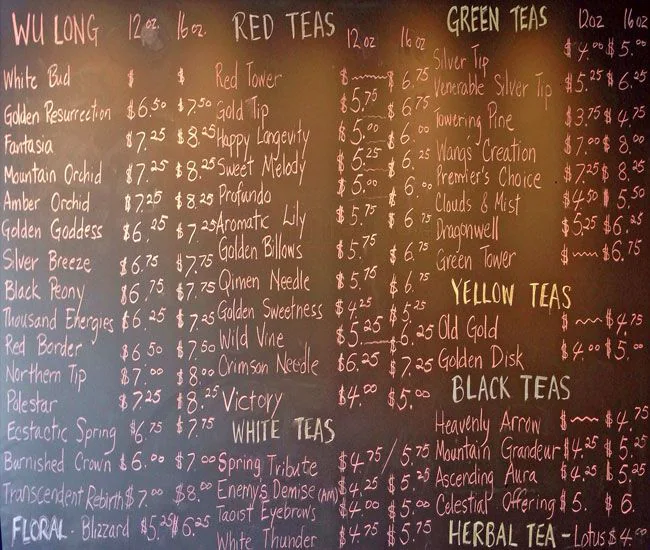 WU LONG 12 oz 16 oz.
White Bud $ $
Golden Resurrection $6.50 $7.50
Fantasia $7.25 $8.25
Mountain Orchid $7.25 $8.25
Amber Orchid $7.25 $8.25
Golden Goddess $6.25 $7.25
Silver Breeze $6.75 $7.75
Black Peony $6.75 $7.75
Thousand Energies $6.25 $7.25
Red Border $6.50 $7.50
Northern Tip $7.00 $8.00
Polestar $7.25 $8.25
Ecstactic Spring $6.75 $7.75
Burnished Crown $6.00 $7.00
Transcendent Rebirth $7.00 $8.00
FLORAL - Blizzard $5.25 $6.25
RED TEAS 12 oz 16 oz
Red Tower $~~~ $6.75
Gold Tip $5.75 $6.75
Happy Longevity $5.00 $6.00
Sweet Melody $5.25 $6.25
Profundo $5.00 $6.00
Aromatic Lily $5.75 $6.75
Golden Billows $5.75 $6.75
Qimen Needle $5.75 $6.75
Golden Sweetness $4.25 $5.25
Wild Vine $5.25 $6.25
Crimson Needle $6.25 $7.25
Victory $4.00 $5.00
WHITE TEAS
Spring Tribute $4.75 / $5.75
Enemy's Demise (AM) $4.25 $5.25
Taoist Eyebrows $4.00 $5.00
White Thunder $4.75 $5.75
GREEN TEAS 12oz 16 oz
Silver Tip $4.00 $5.00
Venerable Silver Tip $5.25 $6.25
Towering Pine $3.75 $4.75
Wangs Creation $7.00 $8.00
Premier's Choice $7.25 $8.25
Clouds & Mist $4.50 $5.50
Dragonwell $5.25 $6.25
Green Tower $~~~ $6.75
YELLOW TEAS
Old Gold $~~~ $4.75
Golden Disk $4.00 $5.00
BLACK TEAS
Heavenly Arrow $~~~ $4.75
Mountain Grandeur $4.25 $5.25
Ascending Aura $4.25 $5.25
Celestial Offering $5. $6.
HERBAL TEA - Lotus $4.00